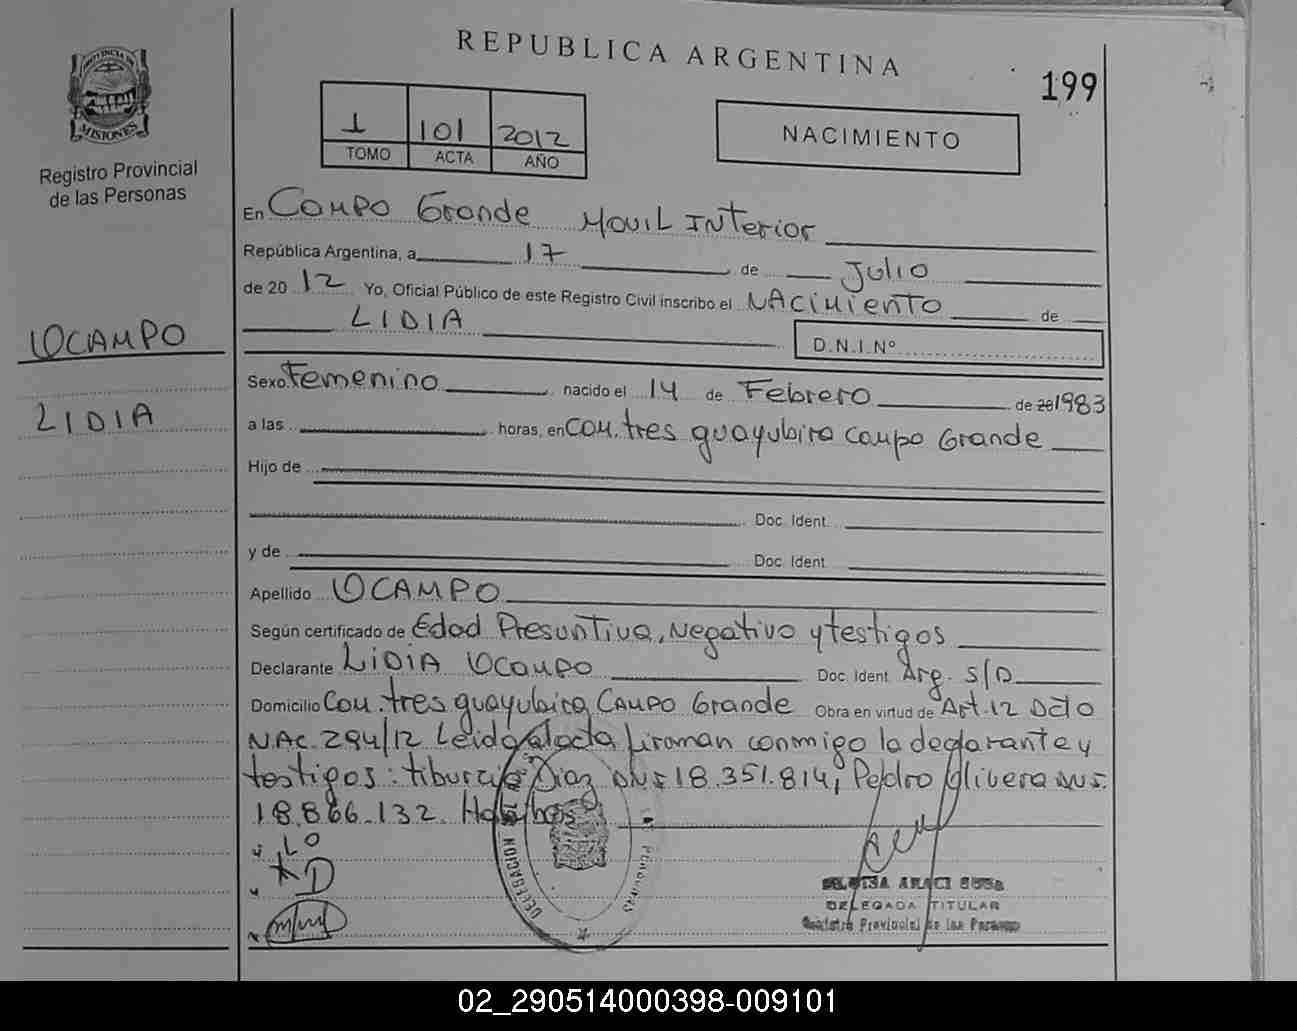 REPUBLICA ARGENTINA
199
PROVINCIA DE
MISIONES
Registro Provincial
de las Personas
1 101 2012
TOMO ACTA AÑO
NACIMIENTO
En Campo Grande Movil Interior
República Argentina, a 17 de Julio
de 20 12 Yo, Oficial Público de este Registro Civil inscribo el NACimiento de
LIDIA
D.N.I.Nº
OCAMPO
LIDIA
Sexo Femenino nacido el 14 de Febrero de 20 1983
a las horas, en Com. tres guayubira Campo Grande
Hijo de
Doc. Ident.
y de Doc. Ident.
Apellido OCAMPO
Según certificado de Edad Presuntiva, Negativo y testigos
Declarante LIDIA OCAMPO Doc. Ident. Arg. S/D
Domicilio Com. tres guayubira Campo Grande Obra en virtud de Art. 12 Dcto
NAC. 294/12 Leida el acta, firman conmigo la declarante y
testigos: tiburcio Diaz DNI 18.351.814, Pedro Olivera DNI.
18.866.132. Hol
LO
D
DELEGACION
DELEGADA TITULAR
Registro Provincial de las Personas
02_290514000398-009101